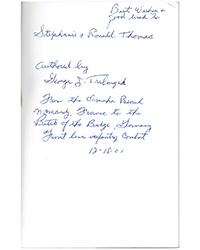 Best Wishes &
good luck to
Stephanie & Ronald Thomas
Authored by
George J.
From the Omaha Beach
Normandy, France to the
Battle of the Bulge, Germany
of Front line infantry Combat
12-18-01